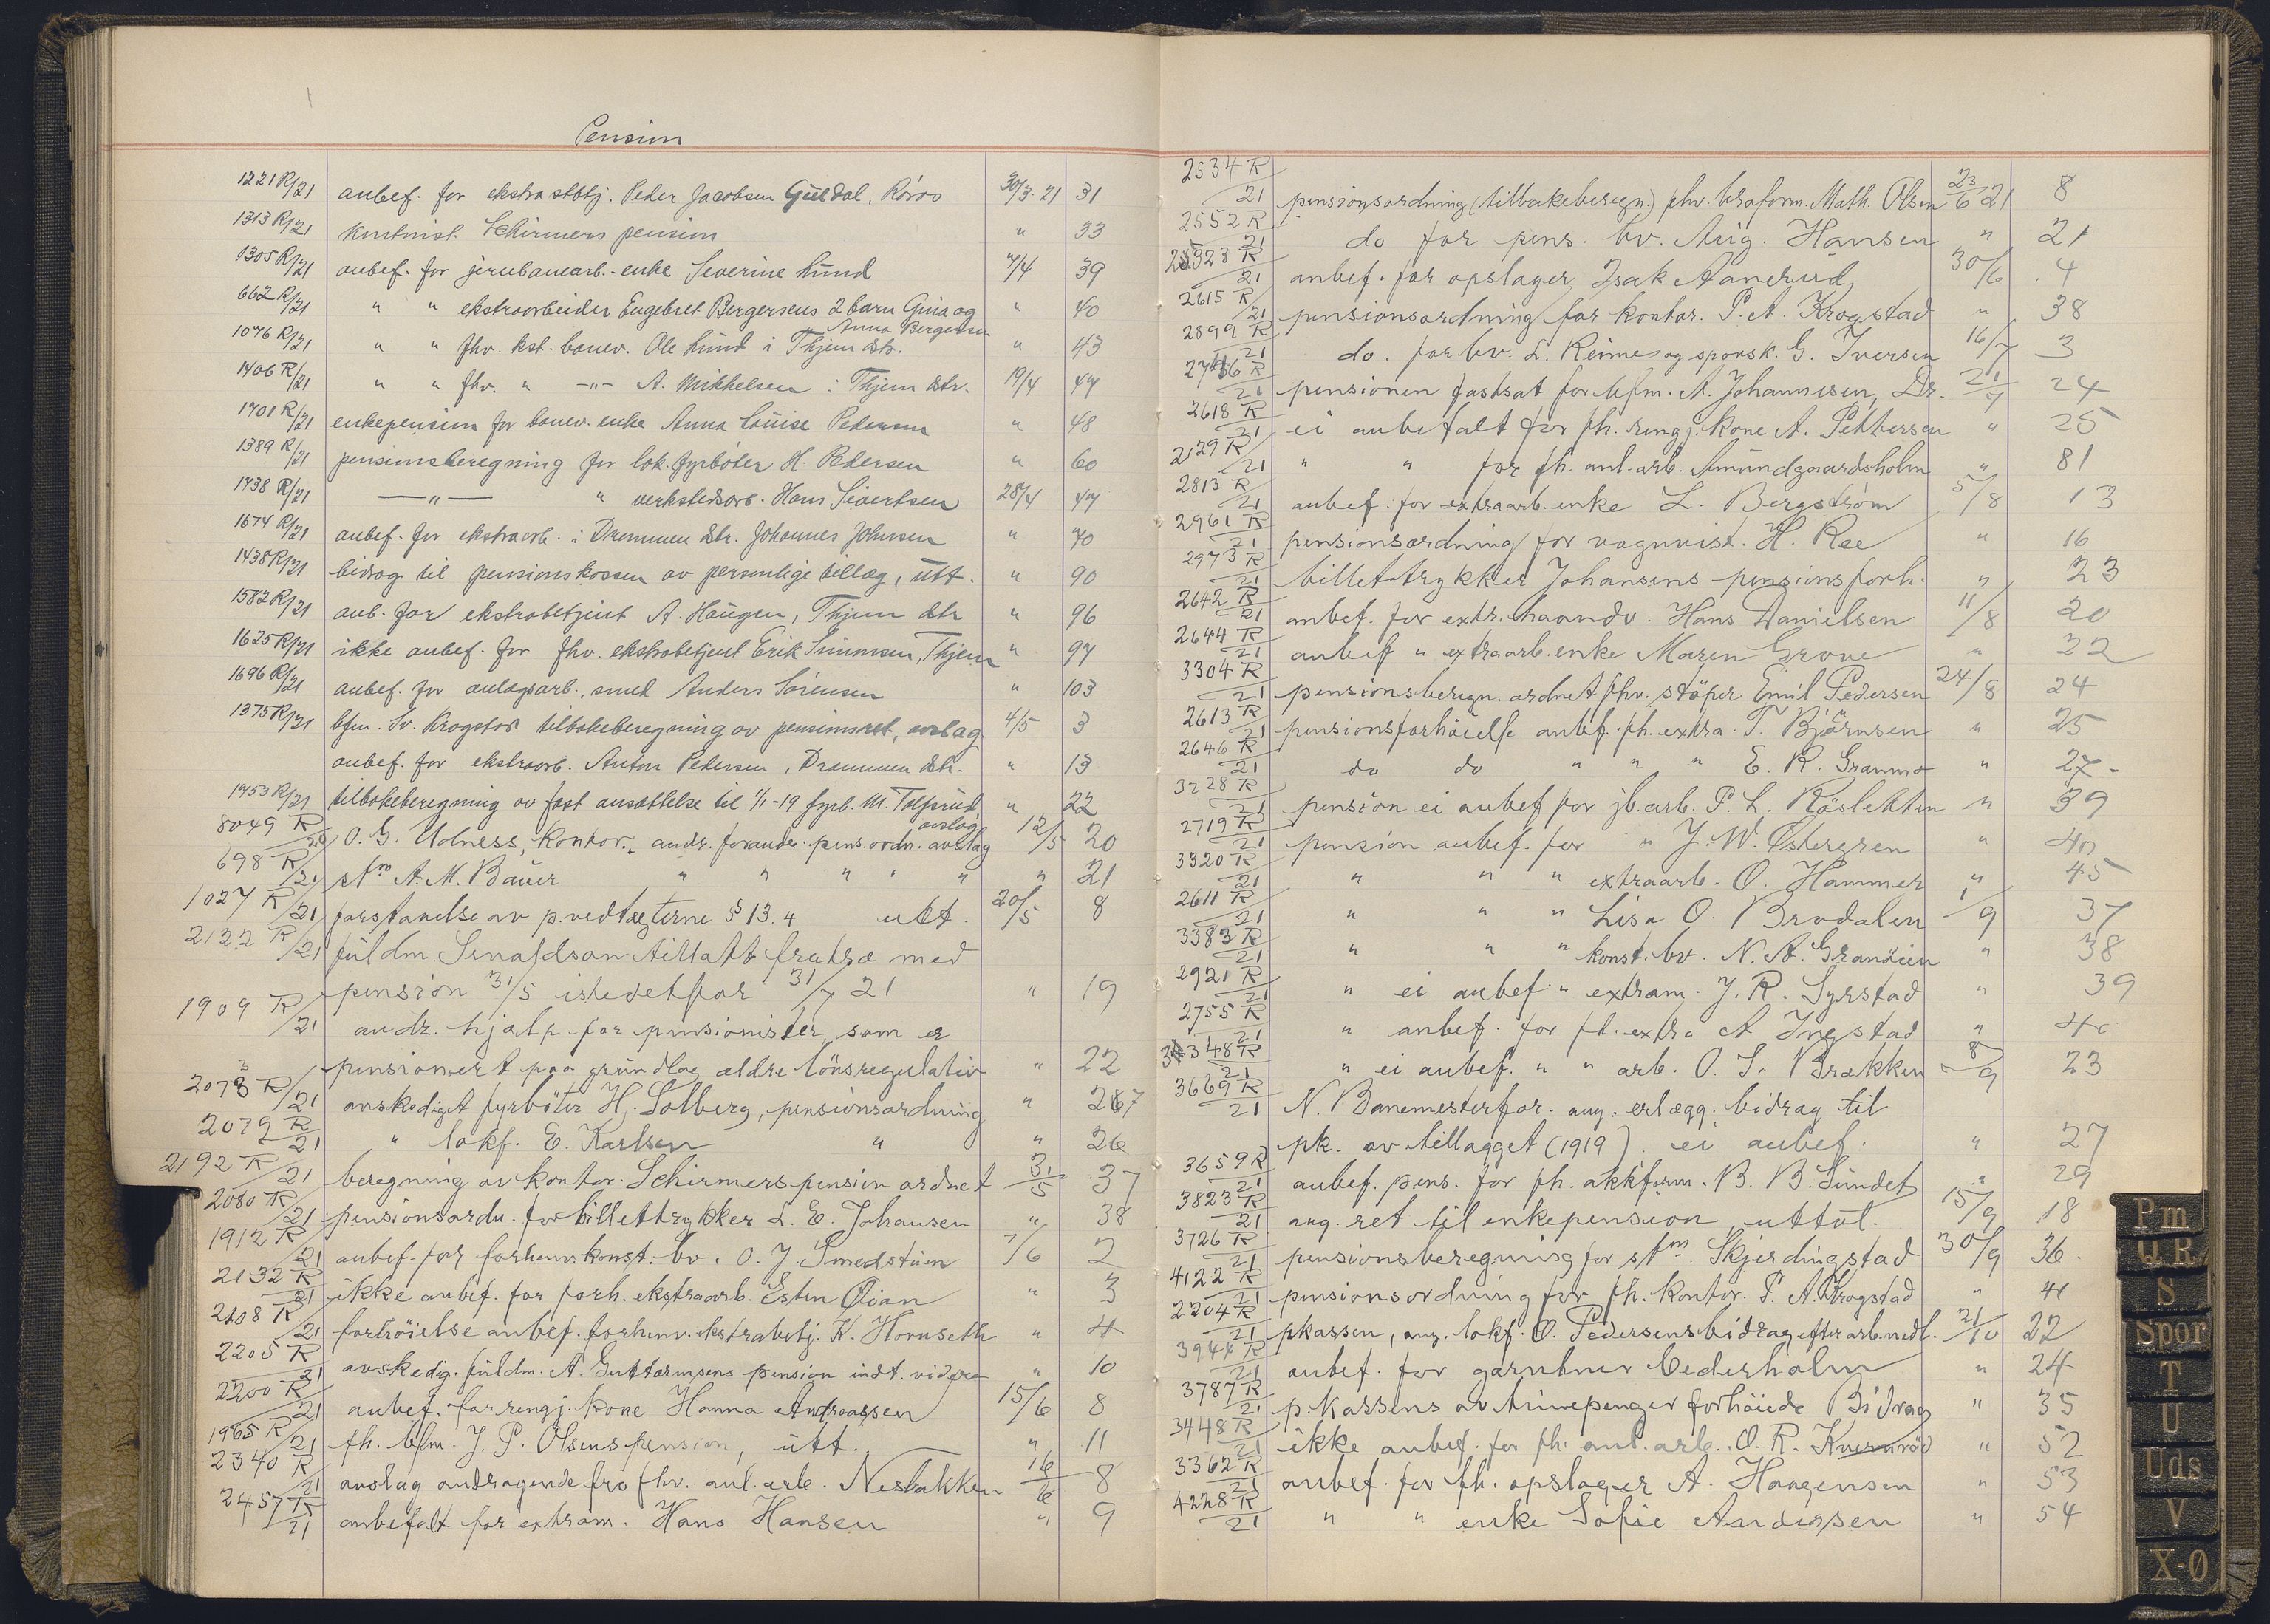 Pension
1221 R/21 anbef. for ekstra stbtj. Peder Jacobsen Guldal, Röros 30/3-21 31
1313 R/21 Kontorist. Schirmers pension " 33
1305 R/21 anbef. for jernbanearb.-enke Severine Lund 7/4 39
662 R/21 " " ekstraarbeider Engebret Bergersens 2 barn Gina og " 40
Anna Bergersen
1076 R/21 " " fhv. kst. banev. Ole Lund i Thjem dstr. " 43
1406 R/21 " " fhv. " -"- A. Mikkelsen i Thjem dstr. 19/4 47
1701 R/21 enkepension for banev. enke Anna Louise Pedersen " 48
1389 R/21 pensionsberegning for lok. fyrböter H. Pedersen " 60
1738 R/21 -"- " verkstedsarb. Hans Sivertsen 28/4 47
1674 R/21 anbef. for ekstraarb. i Drammen dstr. Johannes Johnsen " 70
1438 R/21 bidrag til pensionskassen av personlige tillæg, utt. " 90
1582 R/21 anb. for ekstrabetjent A. Haugen, Thjem dstr " 96
1625 R/21 ikke anbef. for fhv. ekstrabetjent Erik Simonsen, Thjem " 97
1696 R/21 anbef. for anlægsarb., smed Anders Sörensen " 103
1375 R/21 bfm. Sv. Krogstad tilbakeberegning av pensionsret, avslag 4/5 3
anbef. for ekstraarb. Anton Pedersen, Drammen dstr. " 13
1753 R/21 tilbakeberegning av fast ansættelse til 1/1-19 fyrb. M. Tolfsrud " 22
avslag
8049 R/20 O. G. Udness, kontor., andr. forandr. pens.ordn. avslag 12/5 20
698 R/21 stm A. M. Bauer " " " " " " 21
1027 R/21 forstaaelse av p.vedtægterne § 13.4 utt. 20/5 8
2122 R/21 fuldm. tillatt fratræ med
pension 31/5 istedetfor 31/7 21 " 19
1909 R/21 andr. hjælp for pensionister, som er
pensionert paa grundlag ældre lönsregulativ " 22
2078 R/21 avskediget fyrböter H. Solberg, pensionsordning " 267
2079 R/21 " lokf. E. Karlsen " " 26
2192 R/21 beregning av kontor. Schirmers pension ordnet 31/5 37
2080 R/21 pensionsordn. for billettrykker L. E. Johansen " 38
1912 R/21 anbef. for forhenv. konst. bv. O. J. Smedstuen 7/6 2
2132 R/21 ikke anbef. for forh. ekstraarb. Esten Öian " 3
2108 R/21 forhöielse anbef. forhenv. ekstrabetj. K. Hornseth " 4
2205 R/21 avskedig. fuldm. A. Guttormsens pension indt. videre " 10
2200 R/21 anbef. for rengj. kone Hanna Andreassen 15/6 8
1965 R/21 fh. bfm. J. P. Olsens pension, utt. " 11
2340 R/21 avslag andragende fra fhv. anl. arb. Nesbakken 16/6 8
2457 R/21 anbefalt for extram. Hans Hansen " 9
2534 R/21 pensionsordning (tilbakeberegn.) fhv. broform. Math. Olsen 23/6 21 8
2552 R/21 do for pens. bv. Aug. Hansen " 21
2323 R/21 anbef. for opslager Isak Aanerud 30/6 4
2615 R/21 pensionsordning for kontor. P. A. Krogstad " 38
2899 R/21 do. for bv. L. Reime og sporsk. G. Iversen 16/7 3
2736 R/21 pensionen fastsat for bfm. A. Johannesen, Dr. 21/7 24
2618 R/21 ei anbefalt for fh. rengj. kone A. Pettersen " 25
2129 R/21 " " for fh. anl. arb. Amundgaardsholm " 81
2813 R/21 anbef. for extraarb. enke L. Bergström 5/8 13
2961 R/21 pensionsordning for vognvist. H. Ree " 16
2973 R/21 billettrykker Johansens pensionsforh. " 23
2642 R/21 anbef. for extr. haandv. Hans Danielsen 11/8 20
2644 R/21 anbef " extraarb. enke Maren Grove " 22
3304 R/21 pensionsberegn. ordnet fhv. stöper Emil Pedersen 24/8 24
2613 R/21 pensionsforhöielse anbef. fh. extra. T. Björnsen " 25
2646 R/21 do do " " " E. R. Granmo " 27-
3228 R/21 pension ei anbef for jb. arb. P. L. Rösletten " 39
2719 R/21 pension anbef. for " J. W. Östergren " 40
3320 R/21 " " " extraarb. O. Hammer " 45
2611 R/21 " " " Lisa O. Brodalen 1/9 37
3383 R/21 " " " konst. bv. N. A. Granöien " 38
2921 R/21 " ei anbef " extram. J. R. Syrstad " 39
2755 R/21 " anbef. for fh. extra A Ingstad " 40
3348 R/21 " ei anbef. " " arb. O. S. Brækken 8/9 23
3669 R/21 N. Banemesterfor. ang. erlægg. bidrag til
pk. av tillægget (1919) ei anbef. " 27
3659 R/21 anbef. pens. for fh. akkform. B. B. Sundet " 29
3823 R/21 ang. ret til enkepension, uttal. 15/9 18
3726 R/21 pensionsberegning for stm. Skjerdingstad 30/9 36.
4122 R/21 pensionsordning for fh. kontor. P. A. Krogstad " 41
2204 R/21 pkassen, ang. lokf. O. Pedersens bidrag efter arb. nedl. 21/10 22
3944 R/21 anbef. for gartner Cederholm " 24
3787 R/21 p.kassens av timepenger forhöiede Bidrag " 35
3448 R/21 ikke anbef. for fh. anl. arb. O. R. Kvernröd " 52
3362 R/21 anbef. for fh. opslager A. Haagensen " 53
4228 R/21 " " enke Sofie Andersen " 54
Pm
Q R
S
Spor
T
U
Uds
V
X-Ø